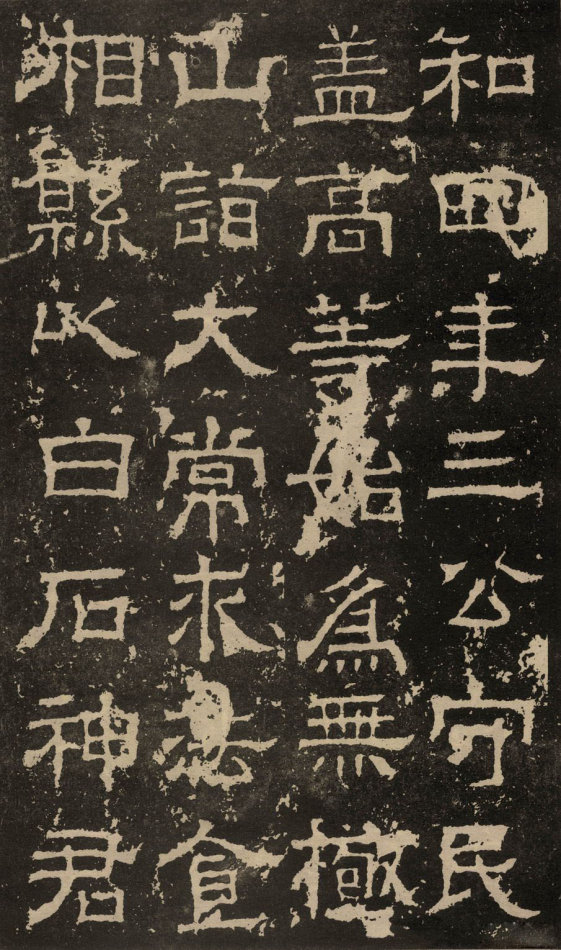 和四年三公守民
盖高等始爲無極
山詣大常求法食
相縣以白石神君